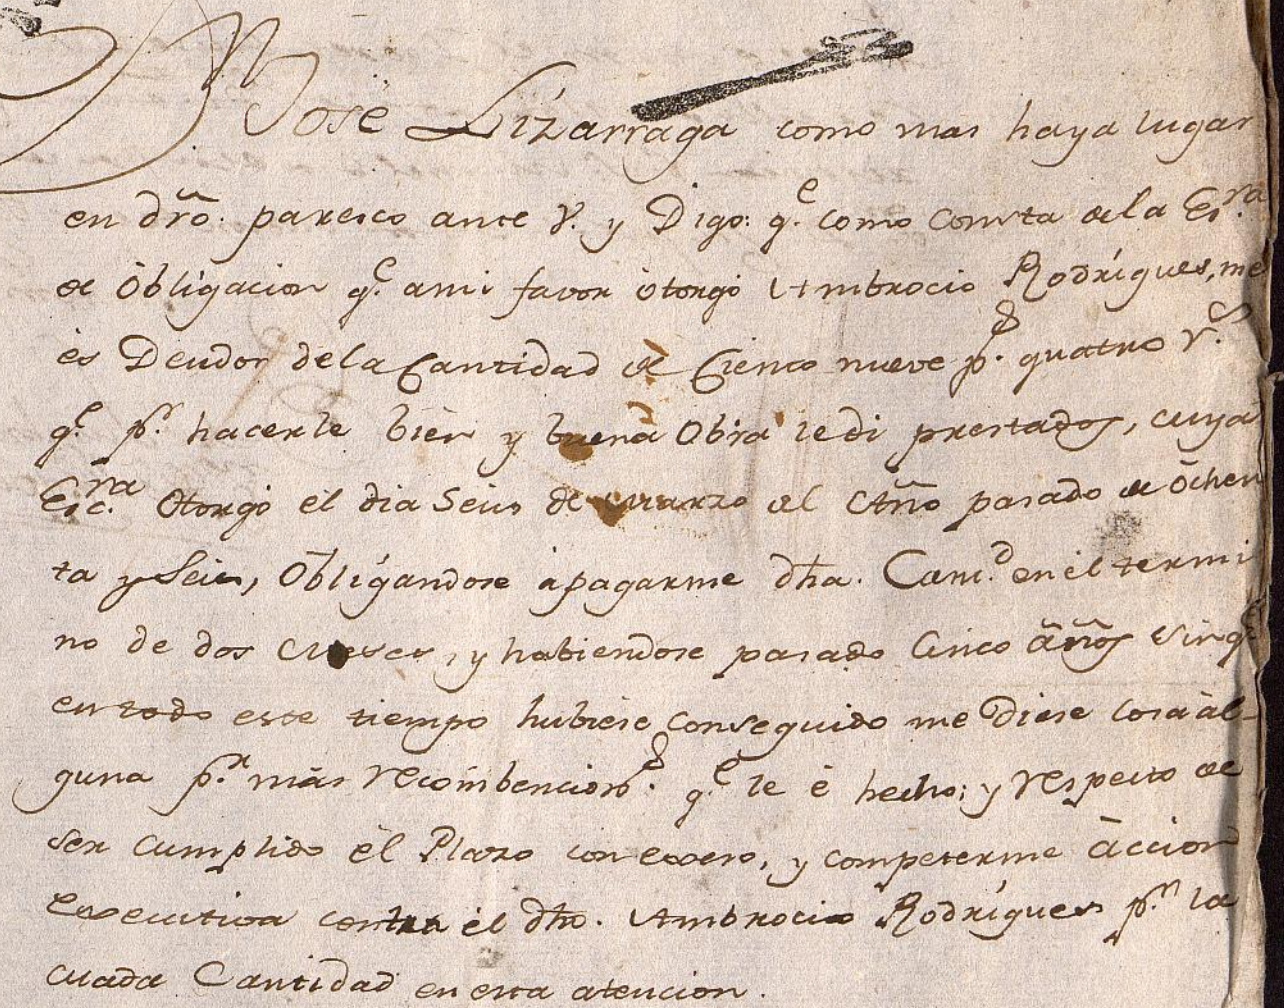 José Lizarraga como mas haya lugar
en dro. paresco ante V. y Digo: qe. como consta de la Esra.
de Obligacion qe. ami favor otorgó Ambrocio Rodrígues, me
és Deudor dela Cantidad de Ciento nueve ps. quatro rs.
qe. pr. hacerle bien y buena Obra ledi prestados, cuya
Escra. Otorgó el dia Seis de Marzo del Año pasado de óchen
ta y Seis, Oblígandose ápagarme dha. Cantd. en él termi
no de dos Meses, y habiendose pasado Cinco años sin qe.
entodo este tiempo hubiese conseguido me Diese cosa ál-
guna pr. mas recombencions. qe. le é hecho; y respecto de
ser cumplido él Plazo con exceso, y competerme áccion
executiva contra él dho. Ambrocio Rodrígues pr. la
citada Cantidad en esta atencion.